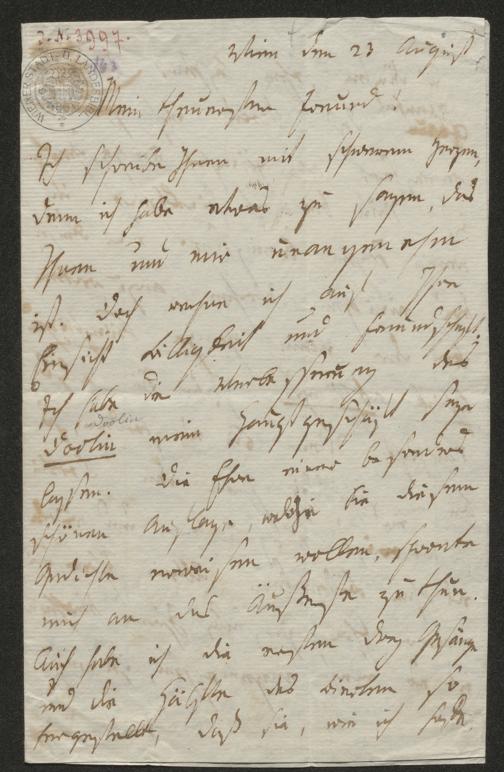 J. N. 3997.
Wien den 23 August
Mein theuerster Freund!
Ich schreibe Ihnen mit schwerem Herzen,
denn ich habe etwas zu sagen, das
Ihnen und mir unangenehm
ist, doch rechne ich auf Ihre
Einsicht Billigkeit und Freundschaft.
Ich habe die Verbesserung des
Doolin
Doolin mein Hauptgeschäft seyn
lassen. Die Ehre einer besonders
schönen Auflage, welche Sie diesem
Gedichte erweisen wollen, spornte
mich an das Äußerste zu thun.
Auch habe ich die ersten drey Gesänge
und die Hälfte des vierten so
hergestellt, daß sie, wie ich hoffe,